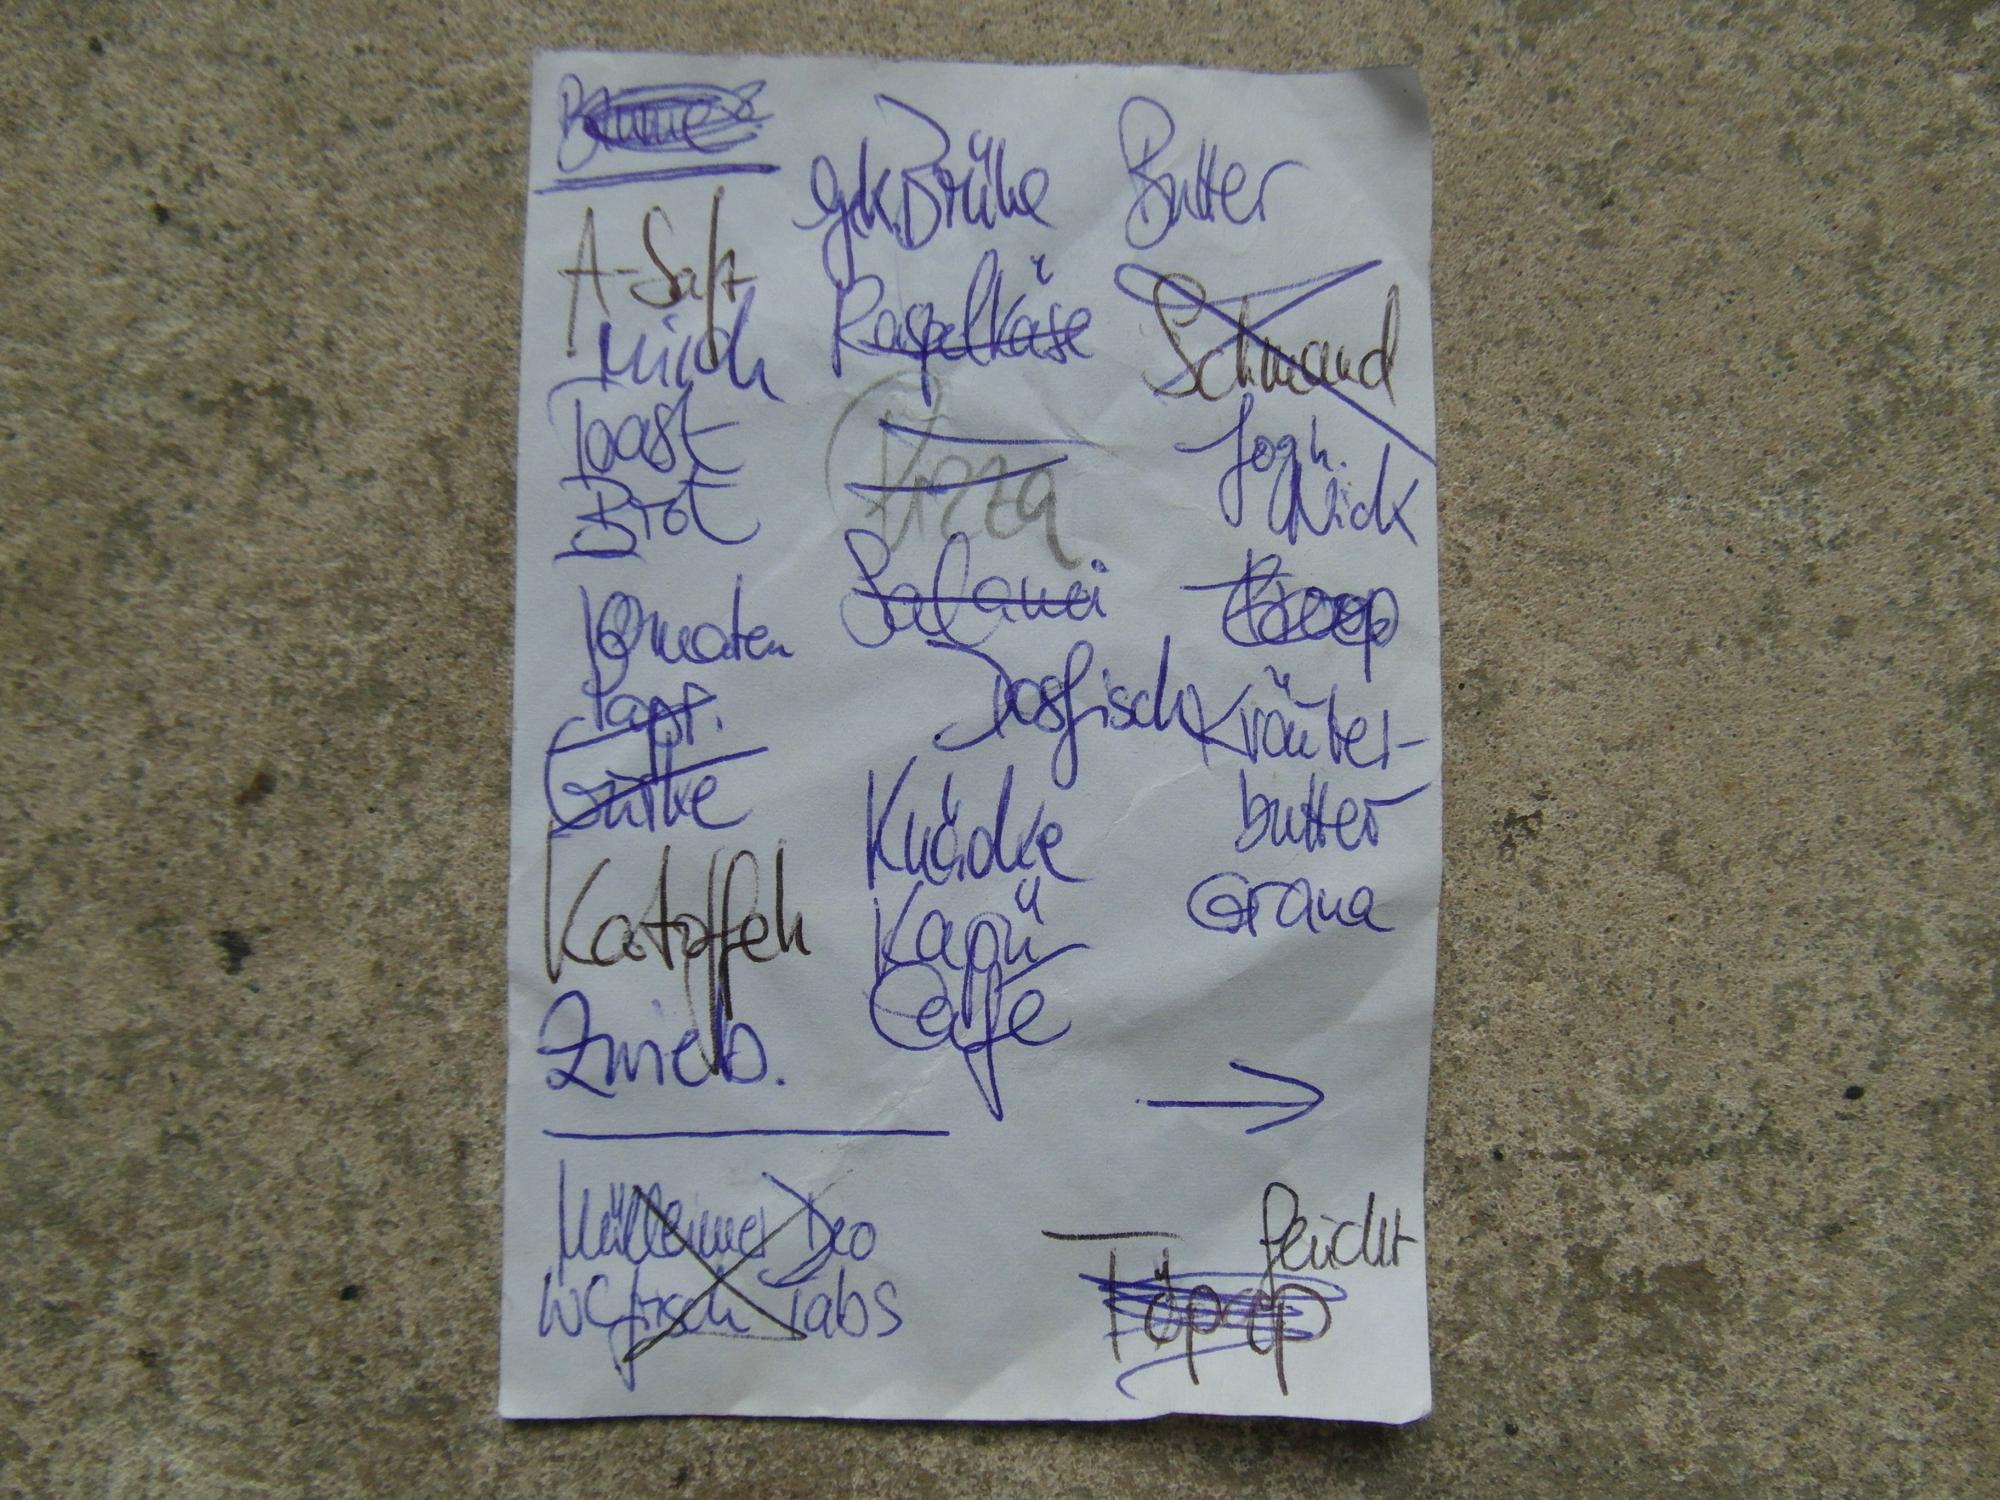 A-Saft
Milch
Toast
Brot
Tomaten
Papr.
Gurke
Katoffeln
Zwieb.
GekBrühe
Raspelkäse
Pizza
Salami
Dosfisch
Knäcke
Kapü
Caffe
Butter
Schmand
Jogh.
Nick
Kräuter-
butter
Grana
→
Mülleimer Deo
WCfrisch Tabs
feucht